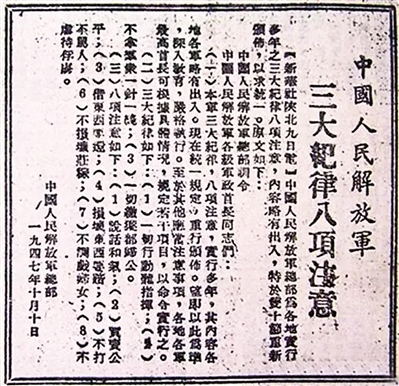 中國人民解放軍
三大紀律八項注意
【新華社陝北九日電】中國人民解放軍總部為各地實行
多年之三大紀律八項注意，內容略有出入，特於雙十節重新
頒佈，以求統一。原文如下：
中國人民解放軍總部訓令
中國人民解放軍各級軍政首長同志們：
（一）本軍三大紀律，八項注意，實行多年，其內容各
地各軍略有出入。現在統一規定，重行頒佈。望即以此為準
，深入教育，嚴格執行。至於其他應當注意事項，各地各軍
最高首長可根據具體情況，規定若干項目，以命令實行之。
（二）三大紀律如下：（1）一切行動聽指揮；（2）
不拿羣衆一針一綫；（3）一切繳獲歸公。
（三）八項注意如下：（1）說話和氣；（2）買賣公
平；（3）借東西要還；（4）損壞東西要賠；（5）不打
不罵人；（6）不損壞莊稼；（7）不調戲婦女；（8）不
虐待俘虜。
中國人民解放軍總部
一九四七年十月十日